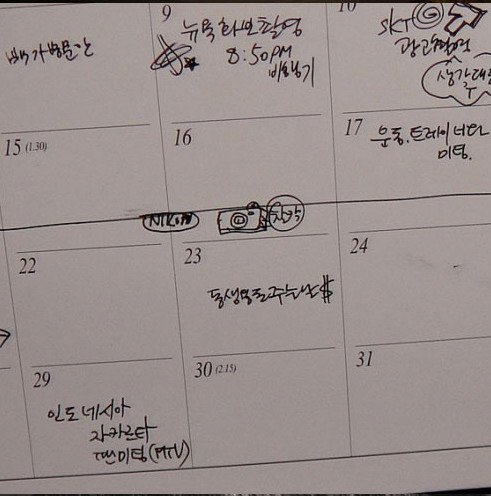 9
뉴욕 화보촬영
8:50PM
비행기
10
SKT
광고촬영
생각대로
15 (1.30)
16
17
운동.트레이너랑
미팅.
NIKON
찰칵
22
23
동생용돈주는날 $
24
29
인도네시아
자카르타
팬미팅(MTV)
30 (2.15)
31